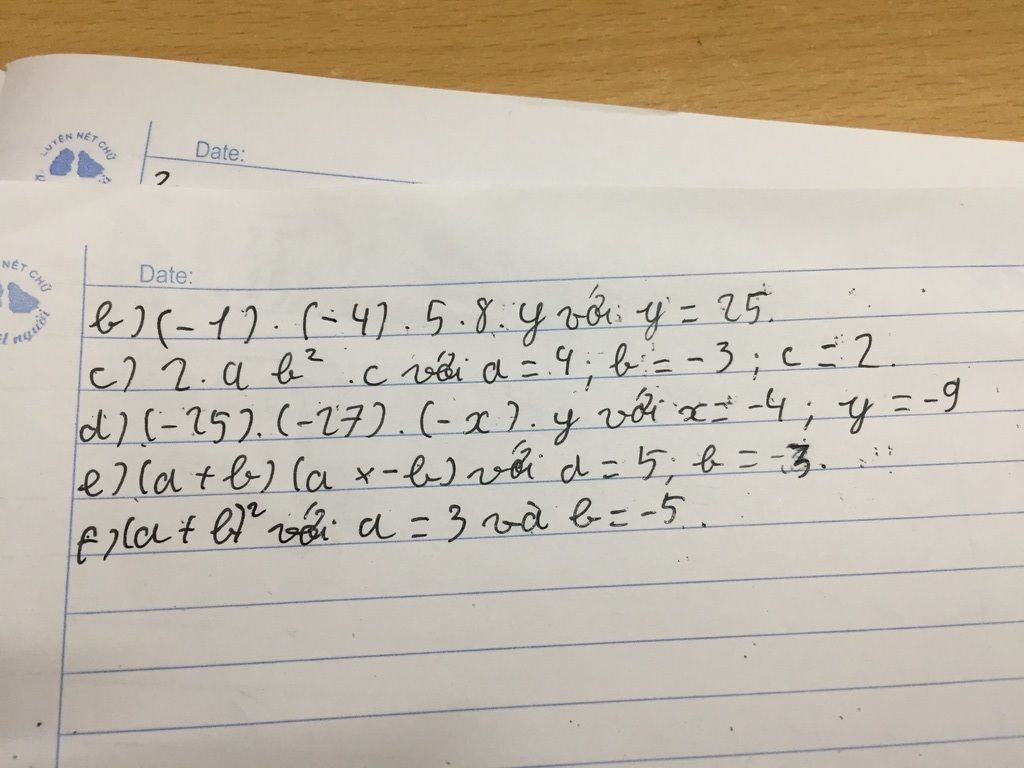 LUYỆN NÉT CHỮ
Date:
2
NÉT CHỮ
người
Date:
b) (-1) . (-4) . 5 . 8 . y với y = 25.
c) 2 . a b² . c với a = 4 ; b = -3 ; c = 2.
d) (-25) . (-27) . (-x) . y với x = -4 ; y = -9
e) (a + b) (a x - b) với a = 5 ; b = -3.
f) (a + b)² với a = 3 và b = -5.